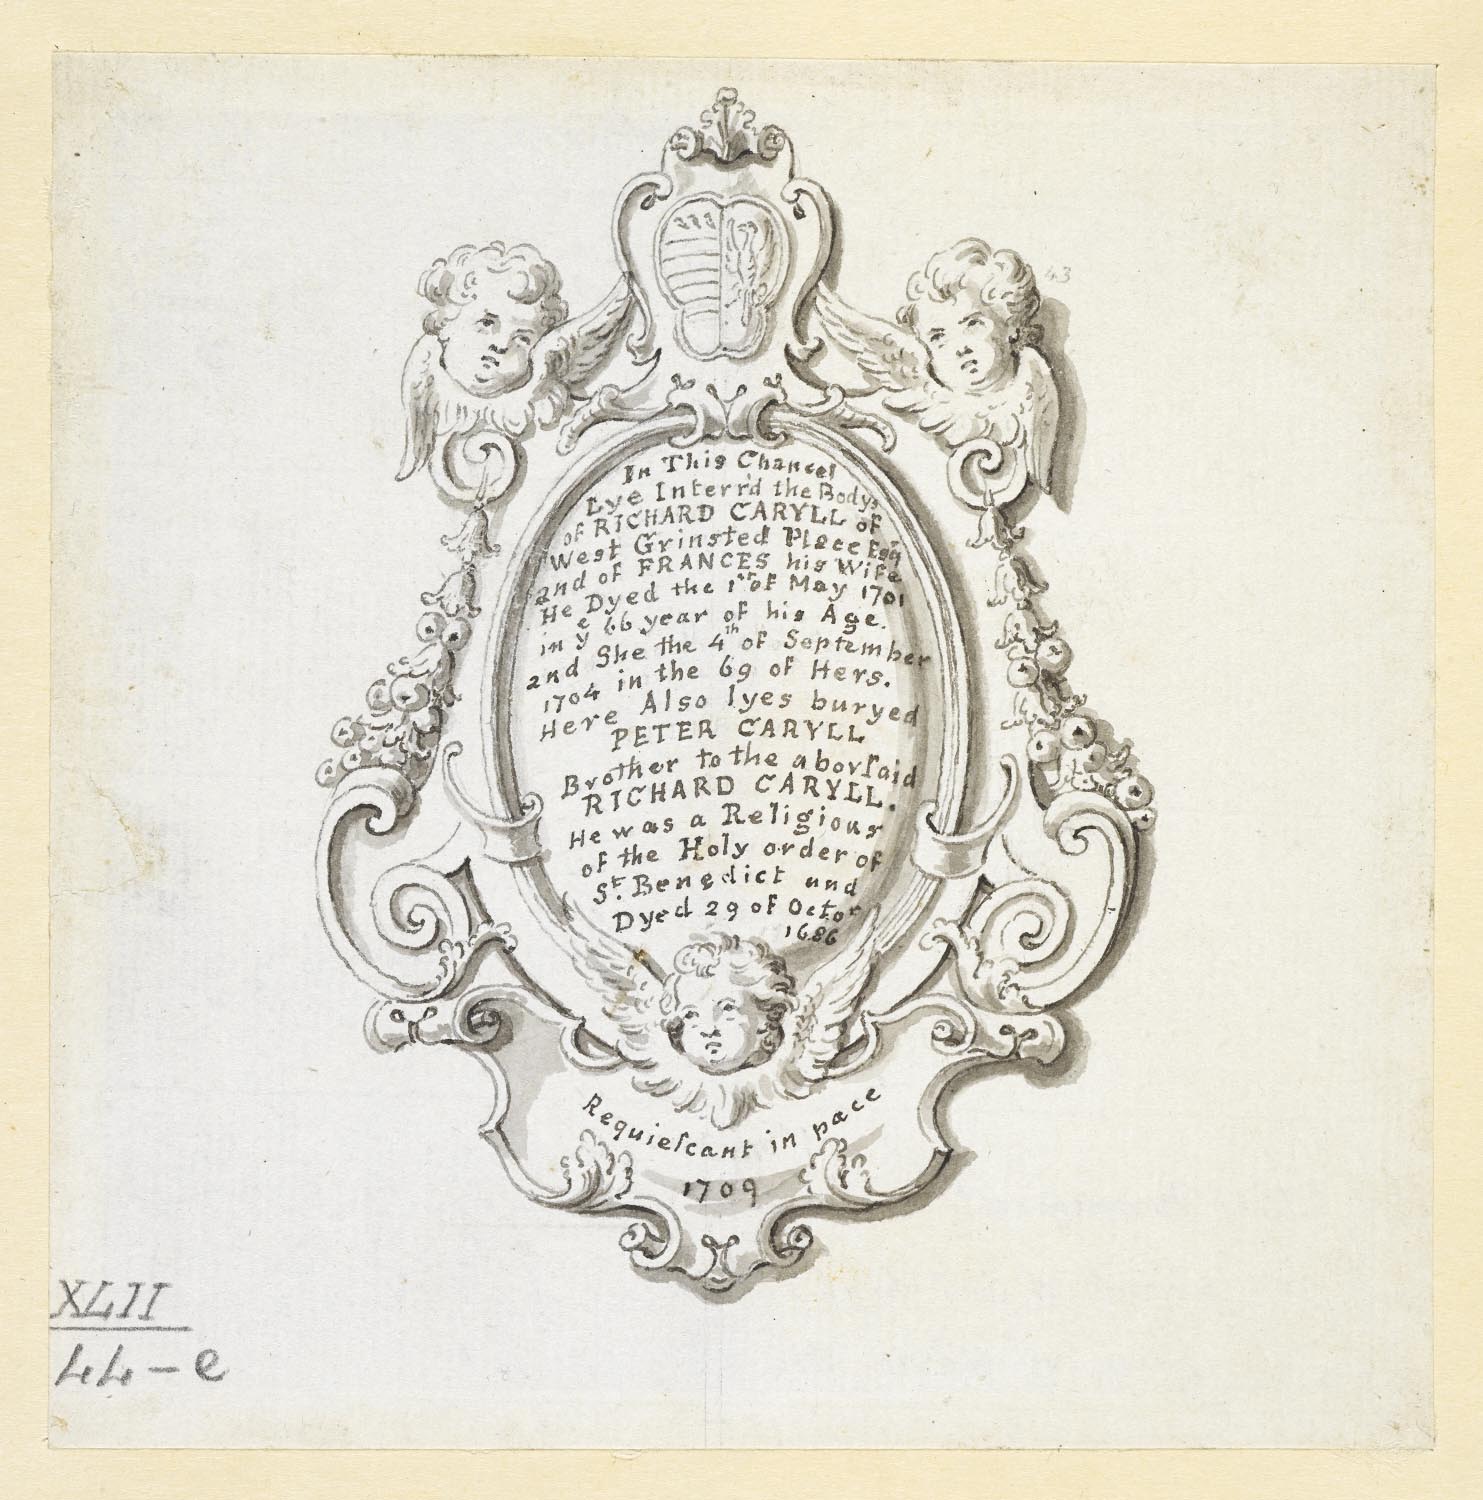 43
In This Chancel
Lye Interr'd the Bodys
of RICHARD CARYLL of
West Grinsted Place Esqr
and of FRANCES his Wife
He Dyed the 1st of May 1701
in ye 66 year of his Age.
and She the 4th of September
1704 in the 69 of Hers.
Here Also lyes buryed
PETER CARYLL
Brother to the aborſaid
RICHARD CARYLL.
He was a Religious
of the Holy order of
St. Benedict and
Dyed 29 of Octor
1686
Requieſcant in pace
1709
XLII
44-e